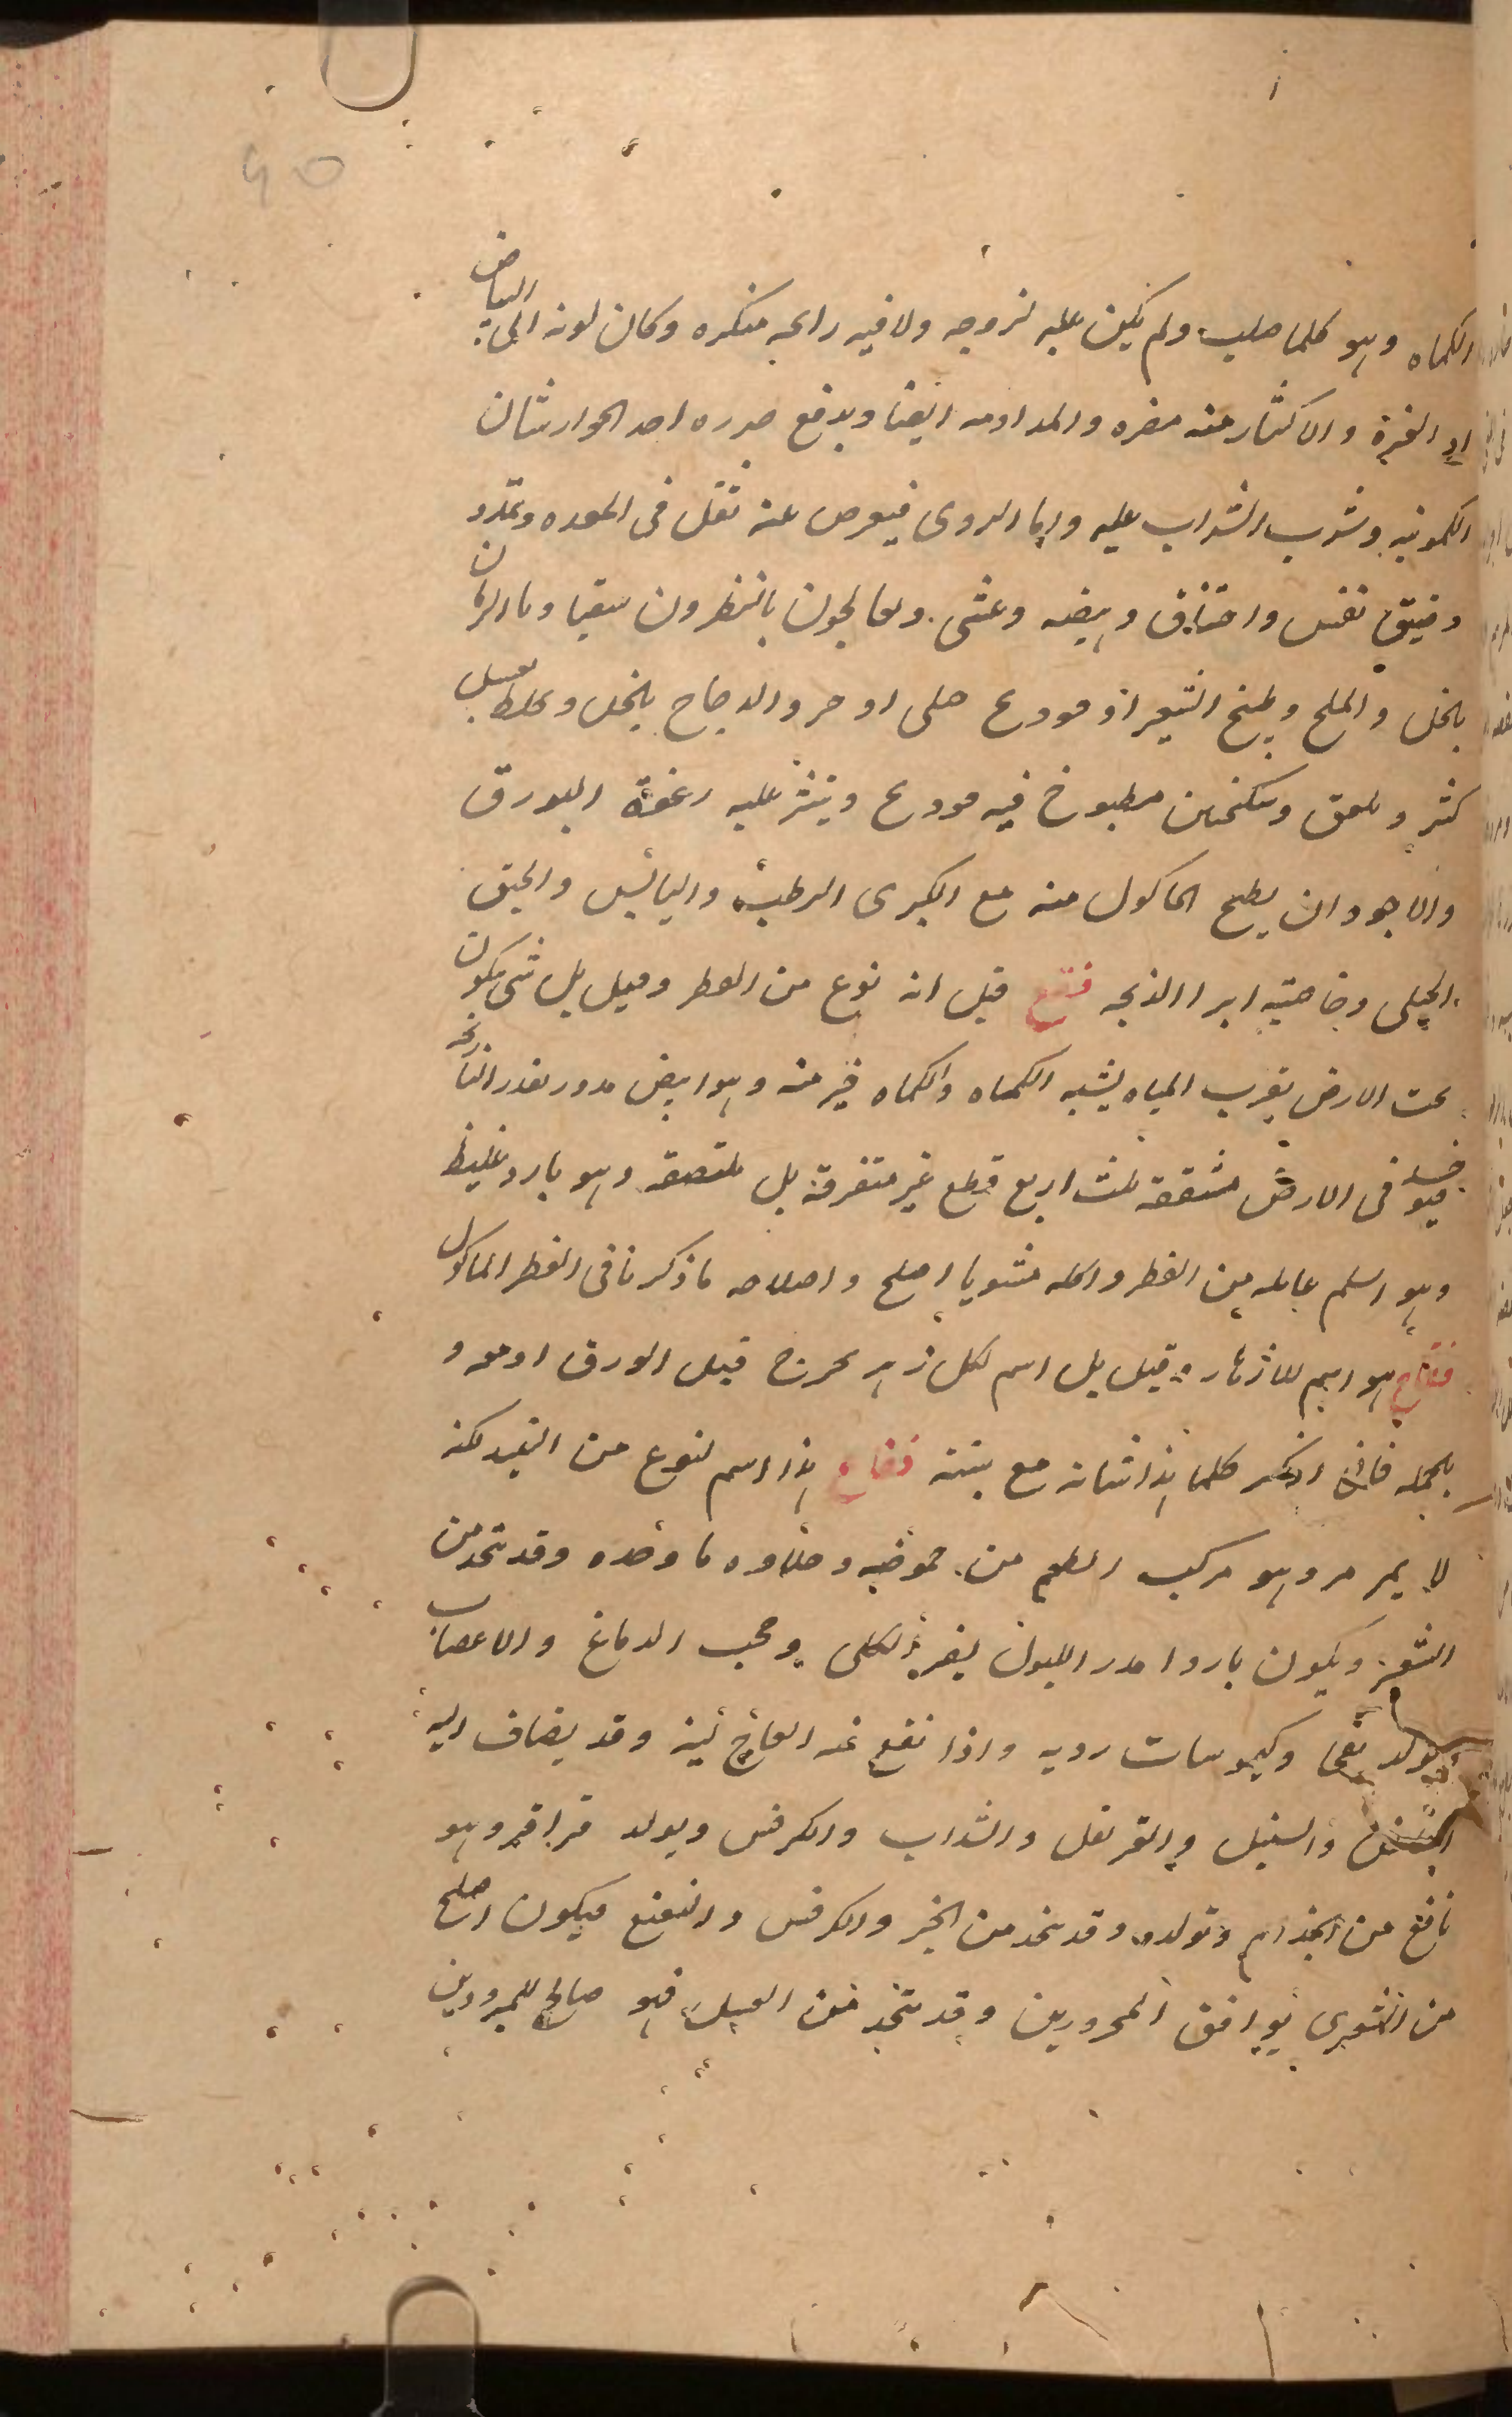 الكماه وهو كلما صلب ولم يكن عليه لزوجه ولا فيه رايحه منكره وكان لونه الى البياض
او الغبرة والاكثار منه مضره والمداومه ايضا ويدفع ضرره احد الجوارشات
الكمونيه وشرب الشراب عليه واما الردى فيعرض عنه ثقل فى المعده وتمدد
وضيق نفس واختناق وهيضه وغشى ويعالجون بالنطرون سقيا وماء الرمان
بالخل والملح وطبخ الشعير او فودنج جبلى او خرو الدجاج بالخل ويخلط بعسل
كثير ويلعق وسكنجبين مطبوخ فيه فودنج وينثر عليه رغوة البورق
والاجود ان يطبخ الماكول منه مع الكمثرى الرطبه واليابس والحبق
الجبلى وخاصيته ابرا الذبحه فقع قيل انه نوع من الفطر وقيل بل شى يتكون
تحت الارض بقرب المياه يشبه الكماه والكماه خير منه وهو ابيض مدور بقدر النارنجه
فيوجد فى الارض مشققه ثلث اربع قطع غير متفرقة بل ملتصقه وهو بارد غليظ
وهو اسلم غايله من الفطر واكله مشويا اصلح واصلاحه ما ذكرنا فى الفطر الماكول
فقاح هو اسم للازهار وقيل بل اسم لكل زهر يخرج قبل الورق او معه و
بالجمله فانى اذكر كلما هذا شانه مع نبته فقاع هذا اسم لنوع من النبيذ لكنه
لا يمر مر وهو مركب الطعم من حموضه وحلاوه ما وحده وقد يتخذ من
الشعير ويكون باردا مدر البول يضر بالكلى وحجب الدماغ والاعصاب
ويولد نفخا وكيموسات رديه واذا نقع فيه العاج لينه وقد يضاف اليه
والسنبل والقرنفل والسداب والكرفس ويولد قراقر وهو
نافع من الجذام وتولده وقد يتخذ من الخبز والكرفس والنعنع فيكون اصلح
من الشعيرى يوافق المحرورين وقد يتخذ من العسل فهو صالح للمبرودين